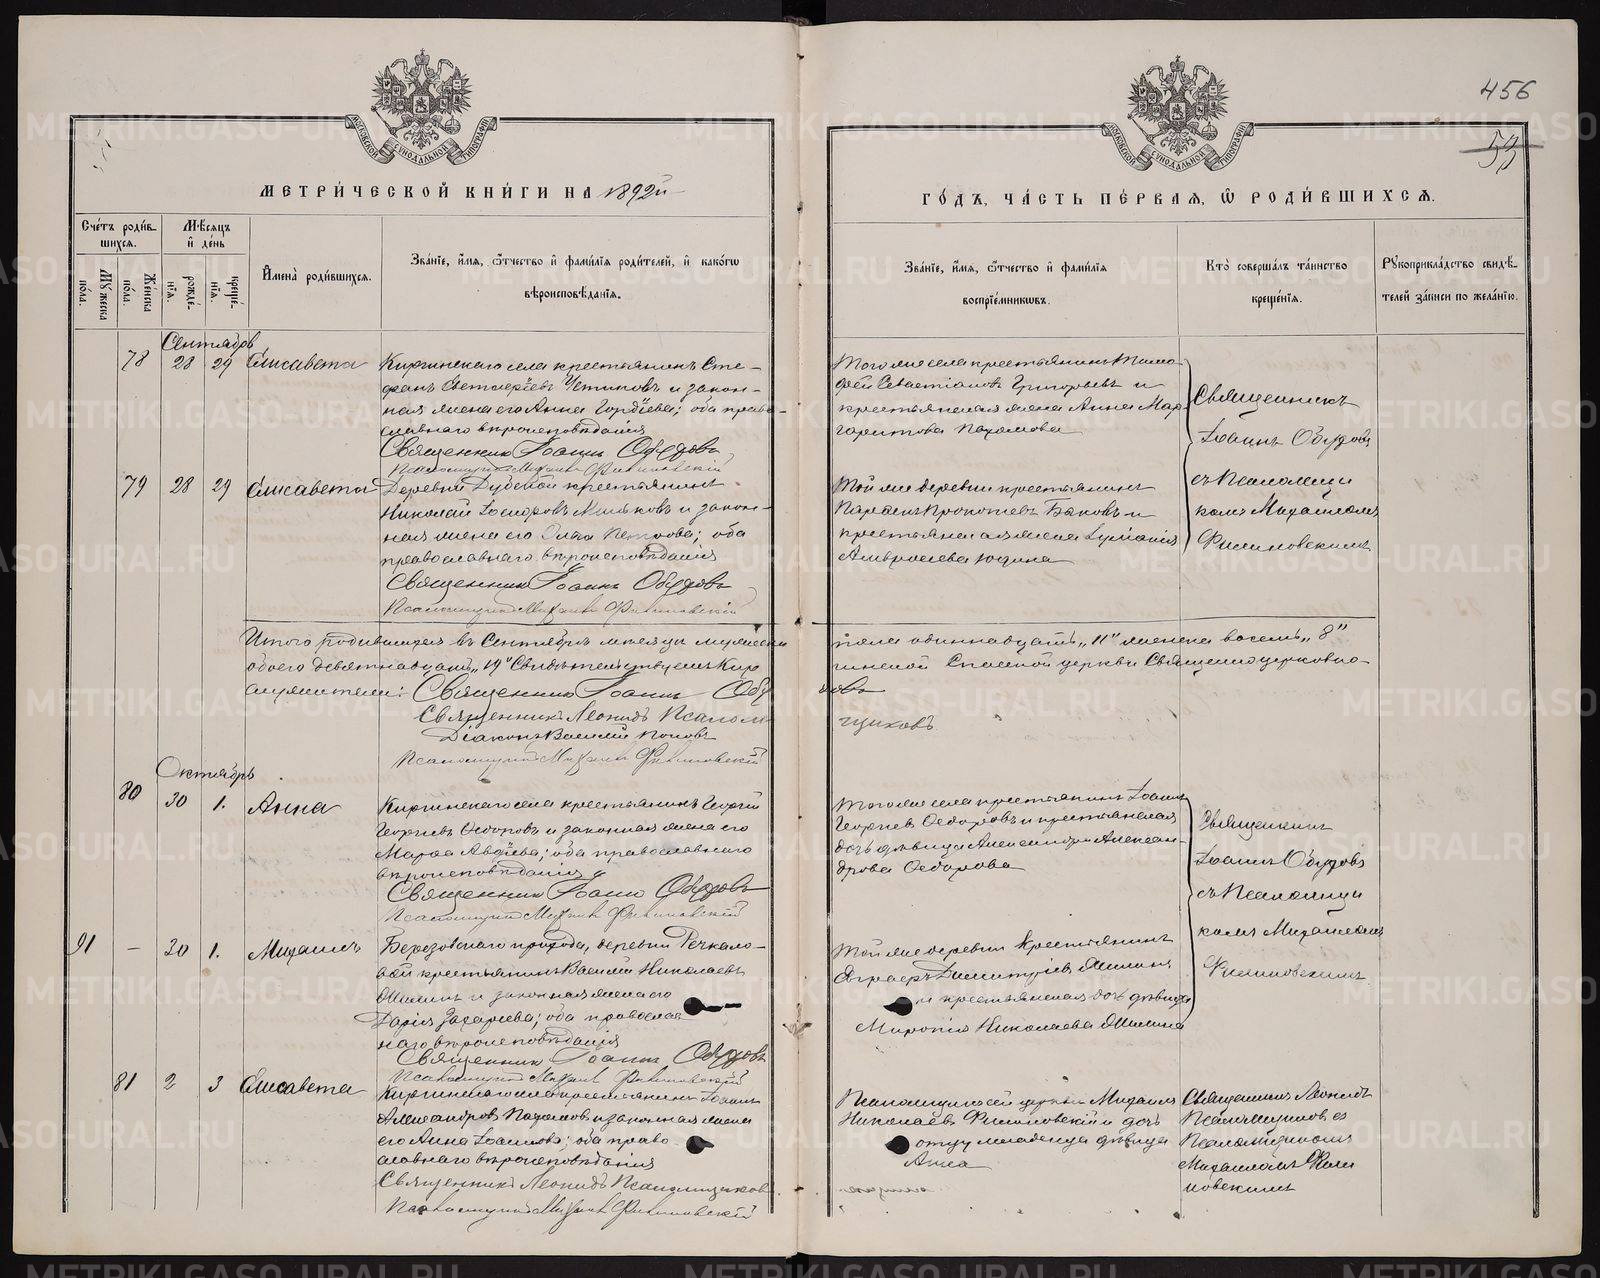 456
53
МОСКОВСКОЙ СѴНОДАЛЬНОЙ ТИПОГРАФІИ
МОСКОВСКОЙ СѴНОДАЛЬНОЙ ТИПОГРАФІИ
МЕТРИ́ЧЕСКОЙ КНИ́ГИ НА 1892й
ГО́ДЪ, ЧА́СТЬ ПЕ́РВАЯ, Ѡ РОДИ́ВШИХСЯ.
Сче́тъ роди́в-
шихся.
Мѣ́сяцъ
и де́нь
Му́жеска
по́ла.
Же́нска
по́ла.
рожде́-
нія.
креще́-
нія.
Имена̀ роди́вшихся.
Зва́нїе, и́мя, ѻ́тчество и фами́лїя роди́телей, и како́гѡ
вѣроисповѣ́данїя.
Зва́нїе, и́мя, ѻ́тчество и фами́лїя
воспрїе́мникѡвъ.
Кто̀ соверша́лъ та́инство
креще́нїя.
Рꙋкоприкла́дство свидѣ́-
телей за́писи по жела́нїю.
Сентябрь
78 28 29 Елисавета
Киргинскаго села крестьянинъ Сте-
фанъ Евстигнѣевъ Устиновъ и закон-
ная жена его Анна Гордіева; оба право-
славнаго вѣроисповѣданія
Священникъ Іоаннъ Обудовъ
Псаломщикъ Михаилъ Филиновскій
Того же села крестьянинъ Тимо-
фей Севастіановъ Григорьевъ и
крестьянская жена Анна Мар-
гаритова Пахомова
Священникъ
Іоаннъ Обудовъ
съ Псаломщи
комъ Михаиломъ
Филиновскимъ
79 28 29 Елисавета
Деревни Дубской крестьянинъ
Николай Іосифовъ и закон-
ная жена его Ольга Петрова; оба
православнаго вѣроисповѣданія
Священникъ Іоаннъ Обудовъ
Псаломщикъ Михаилъ Филиновскій
Той же деревни крестьянинъ
Прокопіевъ Баковъ и
крестьянская жена
Амвросіева Юдина
Итого родившихся въ Сентябрѣ мѣсяцѣ мужска
пола одиннадцать „11“ женска восемь „8“
обоего девятнадцать „19“ Свидѣтельствуемъ Кир
гинской Спасской церкви Священноцерковно-
служители: Священникъ Іоаннъ Обу
довъ
Священникъ Леонидъ Псалом
щиковъ
Діаконъ Василій Поповъ
Псаломщикъ Михаилъ Филиновскій
Октябрь
80 30 1. Анна
Киргинскаго села крестьянинъ Георгій
Георгіевъ Ѳедоровъ и законная жена его
Марѳа Авдіева; оба православнаго
вѣроисповѣданія
Священникъ Іоаннъ Обудовъ
Псаломщикъ Михаилъ Филиновскій
Того же села крестьянинъ Іоаннъ
Георгіевъ Ѳедоровъ и крестьянская
дочь дѣвица Александра Алексан-
дрова Ѳедорова
Священникъ
Іоаннъ Обудовъ
съ Псаломщи
комъ Михаиломъ
Филиновскимъ
91 — 30 1. Михаилъ
Березовскаго прихода, деревни Речкало-
вой крестьянинъ Василій Николаевъ
Шишинъ и законная жена его
Дарія Захаріева; оба православ
наго вѣроисповѣданія
Священникъ Іоаннъ Обудовъ
Псаломщикъ Михаилъ Филиновскій
Той же деревни крестьянинъ
Евграфъ Димитріевъ
и крестьянская дочь дѣвица
Миропія Николаева
81 2 3 Елисавета
Киргинскаго села крестьянинъ Іоаннъ
Александровъ Пахомовъ и законная жена
его Анна Іоаннова; оба право
славнаго вѣроисповѣданія
Священникъ Леонидъ Псаломщиковъ
Псаломщикъ Михаилъ Филиновскій
Псаломщикъ сей церкви Михаилъ
Николаевъ Филиновскій и дочь
отцу младенца дѣвица
Анна
Священникъ Леонидъ
Псаломщиковъ съ
Псаломщикомъ
Михаиломъ Фили
новскимъ
METRIKI.GASO-URAL.RU